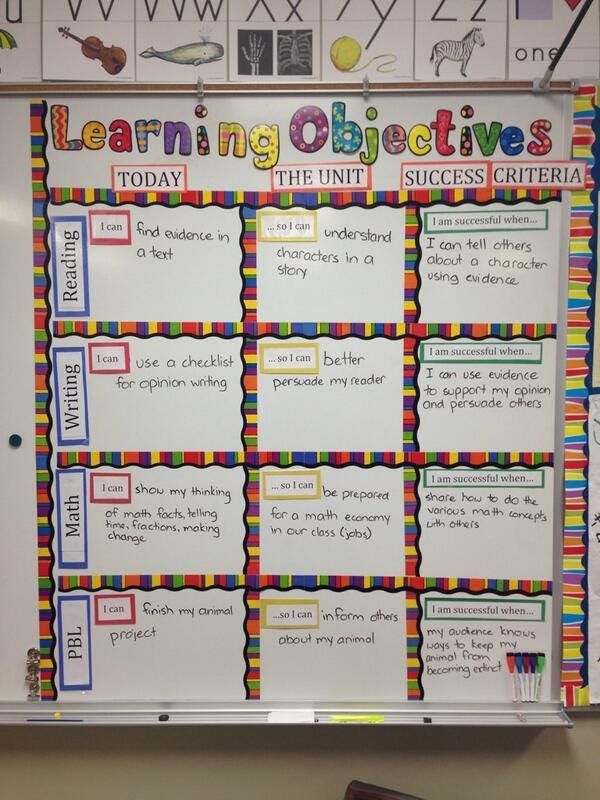 u Vv Ww Xx Yy Zz
one
Learning Objectives
TODAY
THE UNIT
SUCCESS CRITERIA
Reading
I can find evidence in
a text
... so I can understand
characters in a
story
I am successful when...
I can tell others
about a character
using evidence
Writing
I can use a checklist
for opinion writing
... so I can better
persuade my reader
I am successful when...
I can use evidence
to support my opinion
and persuade others
Math
I can show my thinking
of math facts, telling
time, fractions, making
change
... so I can be prepared
for a math economy
in our class (jobs)
I am successful when...
share how to do the
various math concepts
with others
PBL
I can finish my animal
project
...so I can inform others
about my animal
I am successful when...
my audience knows
ways to keep my
animal from
becoming extinct